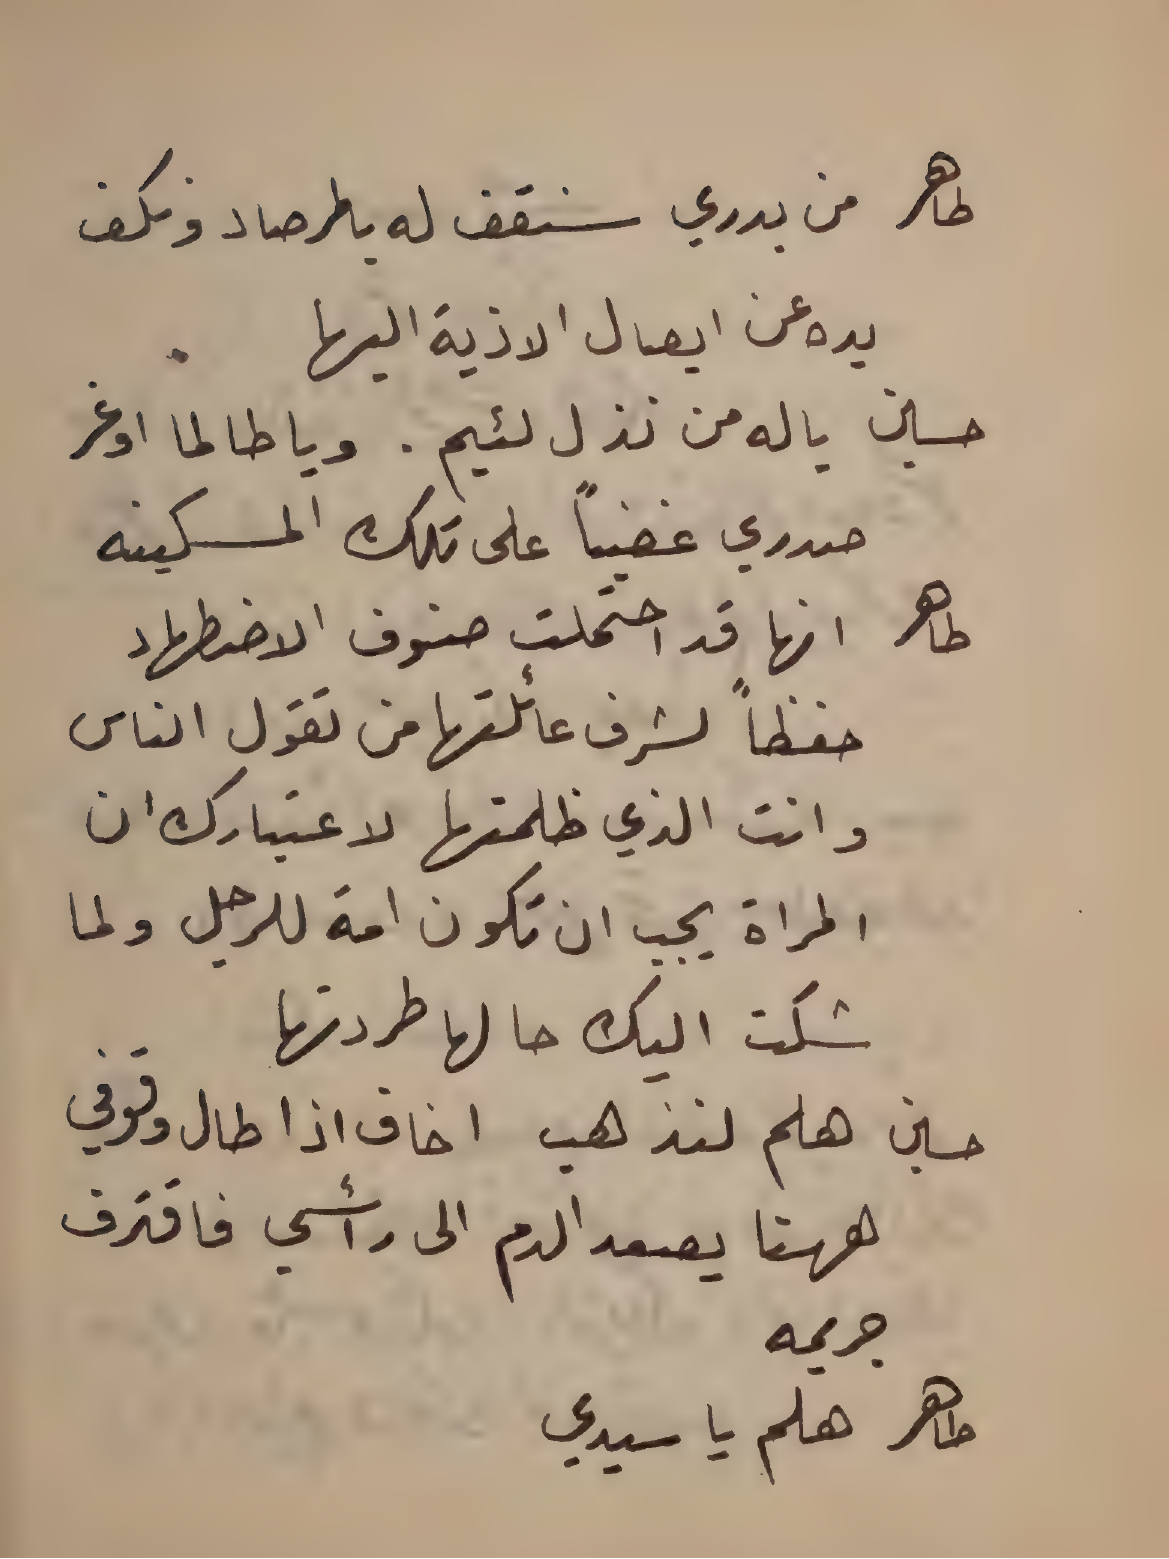 طاهر من يدري سنقف له بالمرصاد ونكف
يده عن ايصال الاذية اليها
حسين ياله من نذل لئيم . ويا طالما اوغر
صدري غضباً على تلك المسكينه
طاهر انها قد احتملت صنوف الاضطهاد
حفظاً لشرف عائلتها من تقول الناس
وانت الذي ظلمتها لاعتبارك ان
المراة يجب ان تكون امة للرجل ولما
شكت اليك حالها طردتها
حسين هلم لنذهب اخاف اذا طال وقوفي
ههنا يصعد الدم الى رأسي فاقترف
جريمه
طاهر هلم يا سيدي